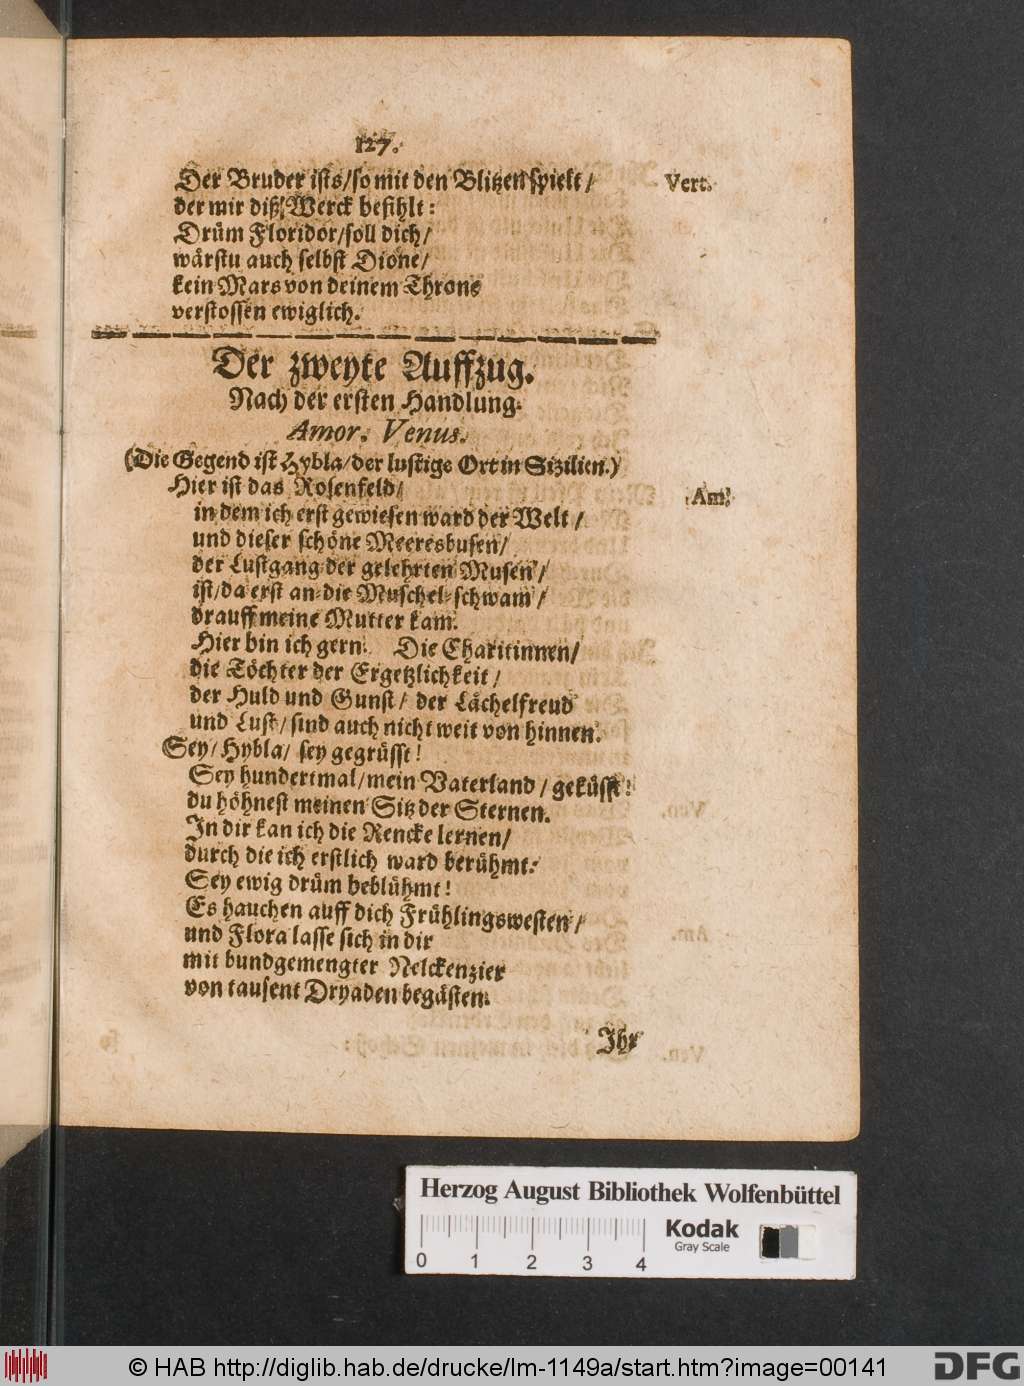 127.
Der Bruder ists/so mit den Blitzen spielt/ Vert.
der mir diß Werck befihlt:
Drüm Floridor/soll dich/
wärstu auch selbst Dione/
kein Mars von deinem Throne
verstossen ewiglich.
Der zweyte Auffzug.
Nach der ersten Handlung.
Amor. Venus.
(Die Gegend ist Hybla/der lustige Ort in Sizilien.)
Hier ist das Rosenfeld/ Am.
in dem ich erst gewiesen ward der Welt/
und dieser schöne Meeresbusen/
der Lustgang der gelehrten Musen/
ist/da erst an-die Muschel-schwam/
drauff meine Mutter kam.
Hier bin ich gern. Die Charitinnen/
die Töchter der Ergetzlichkeit/
der Huld und Gunst/ der Lächelfreud
und Lust/sind auch nicht weit von hinnen.
Sey/Hybla/ sey gegrüsst!
Sey hundertmal/mein Vaterland/geküsst!
du höhnest meinen Sitz der Sternen.
In dir kan ich die Rencke lernen/
durch die ich erstlich ward berühmt.
Sey ewig drüm beblühmt!
Es hauchen auff dich Frühlingswesten/
und Flora lasse sich in dir
mit bundgemengter Nelckenzier
von tausent Dryaden begästen.
Ihr
Herzog August Bibliothek Wolfenbüttel
Kodak
Gray Scale
0 1 2 3 4
© HAB http://diglib.hab.de/drucke/lm-1149a/start.htm?image=00141
DFG